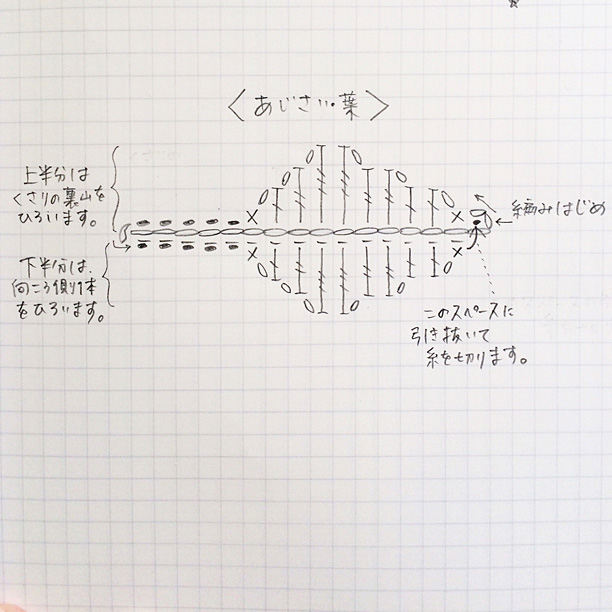 〈あじさい・葉〉
上半分は
くさりの裏山を
ひろいます。
編みはじめ
下半分は、
向こう側1本
をひろいます。
このスペースに
引き抜いて
糸を切ります。